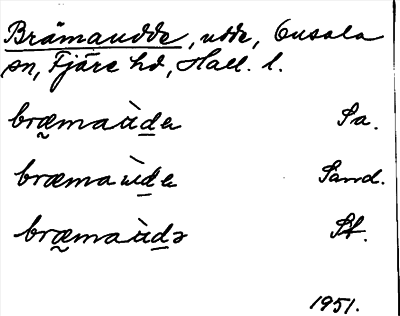 Brämaudde, udde, Onsala
sn, Fjäre hd, Hall. l.
bræ̰maùd̲a Sa.
bræmaùd̲a Sand.
bræ̰maùd̲ə St.
1951.